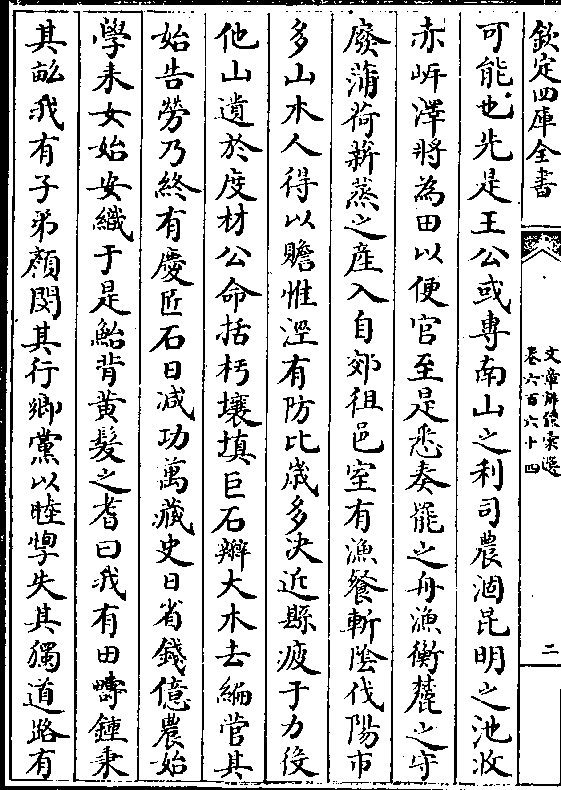 欽定四庫全書
文章辨體彙選
卷六百六十四
二
可能也先是王公或專南山之利司農涸昆明之池收
赤岸澤將為田以便官至是悉奏罷之舟漁衡麓之守
廢蒲荷薪蒸之產入自郊徂邑室有漁餐斬陰伐陽市
多山木人得以贍惟涇有防比歲多決近縣疲于力役
他山遺於度材公命括朽壤填巨石辮大木去編菅其
始告勞乃終有慶匠石日減功萬藏史日省錢億農始
學耒女始安織于是鮐背黃髮之耆曰我有田疇鍾秉
其畝我有子弟顏閔其行鄉黨以睦㷀失其獨道路有